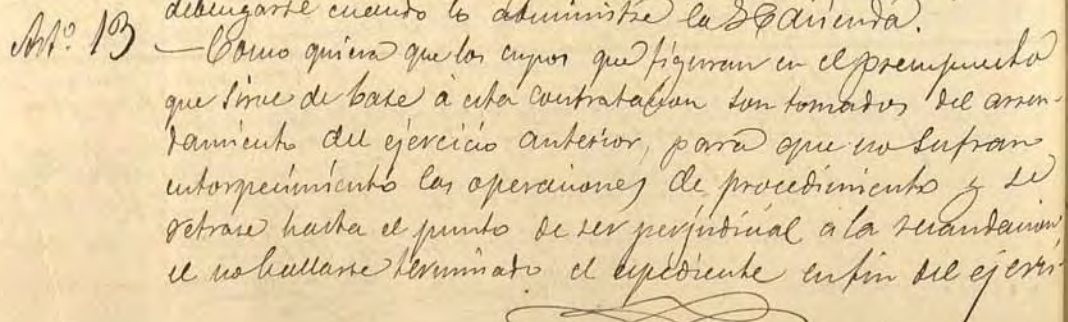 debengarse cuando lo administre la Hacienda.
Artº. 13 — Como quiera que los cupos que figuran en el presupuesto
que sirve de base á esta contratacion son tomados del arren-
damiento del ejercicio anterior, para que no sufran
entorpecimiento las operaciones de procedimiento y se
retrase hasta el punto de ser perjudicial á la recaudacion
el no hallarse terminado el expediente en fin del ejerci-